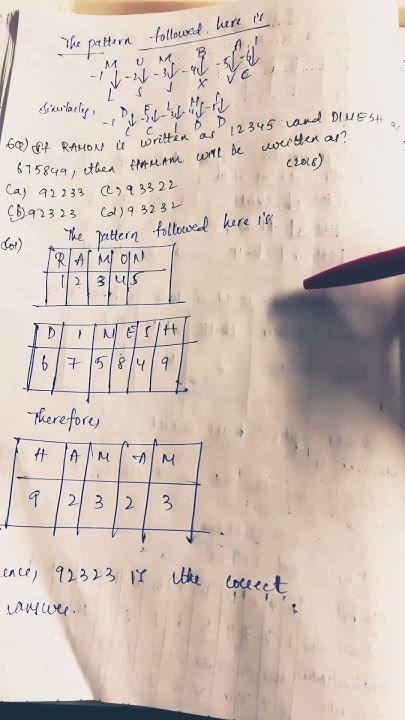 The pattern followed here is
M U M B A I
-1 -2 -3 -4 -5 -6
L S J X V C
Similarly, D E L H I
-1 -2 -3 -4 -5
C C I D D
6Q) If RAMON is written as 12345 and DINESH as
675849, then HAMAM will be written as?
(2018)
(a) 92233 (c) 93322
(b) 92323 (d) 93232
Sol) The pattern followed here is
R A M O N
1 2 3 4 5
D I N E S H
6 7 5 8 4 9
Therefore,
H A M A M
9 2 3 2 3
ence, 92323 is the correct
answer.